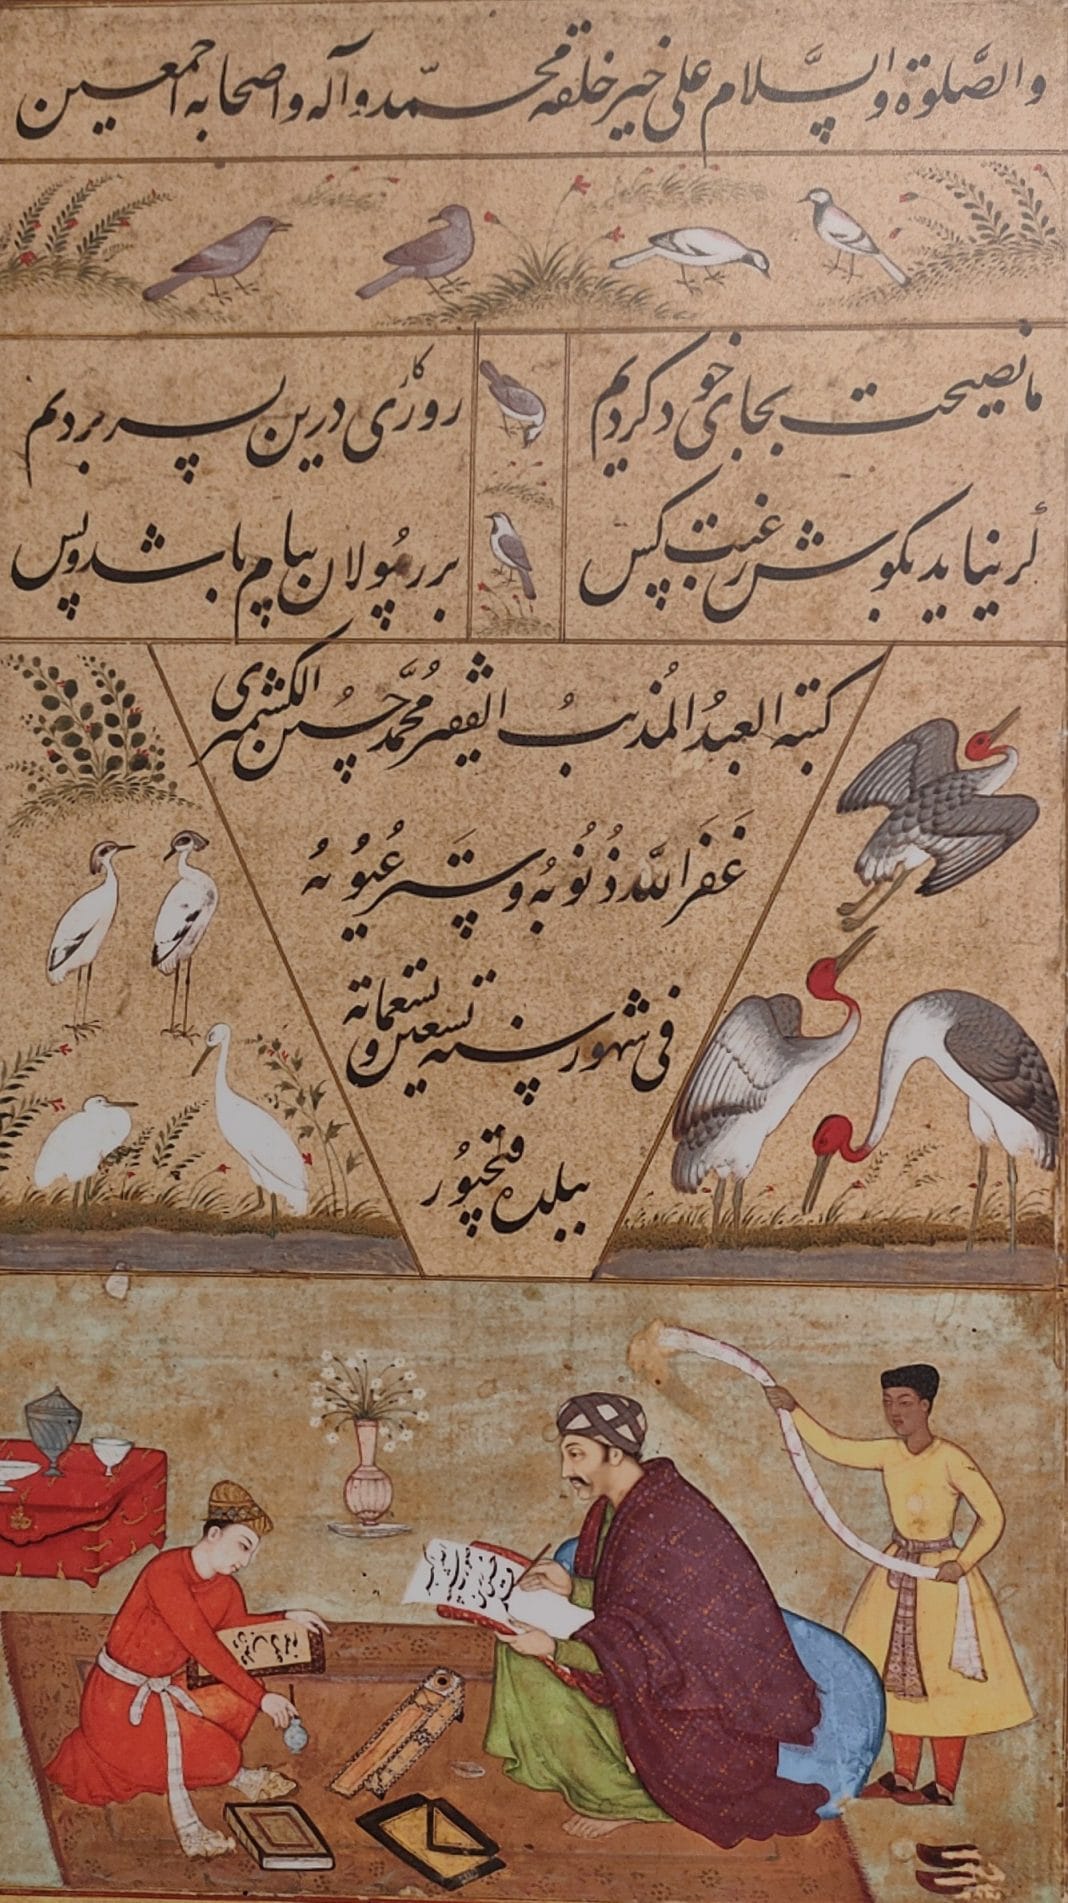 والصّلوة والسّلام علی خیر خلقه محمّد وآله واصحابه اجمعین
ما نصیحت بجای خود کردیم
روزکاری درین بسر بردیم
گر نیاید بکوش رغبت کس
بر رسولان پیام باشد وبس
کتبه العبدُ المُذنبُ الفقیرُ محُمَّد حُسین الکشمیری
غَفَرَ اللّه ذُنُوبُه وستر عُیُوبُه
فی شهور سنه تسعین وتسعمائة
ببلده فتحپُور